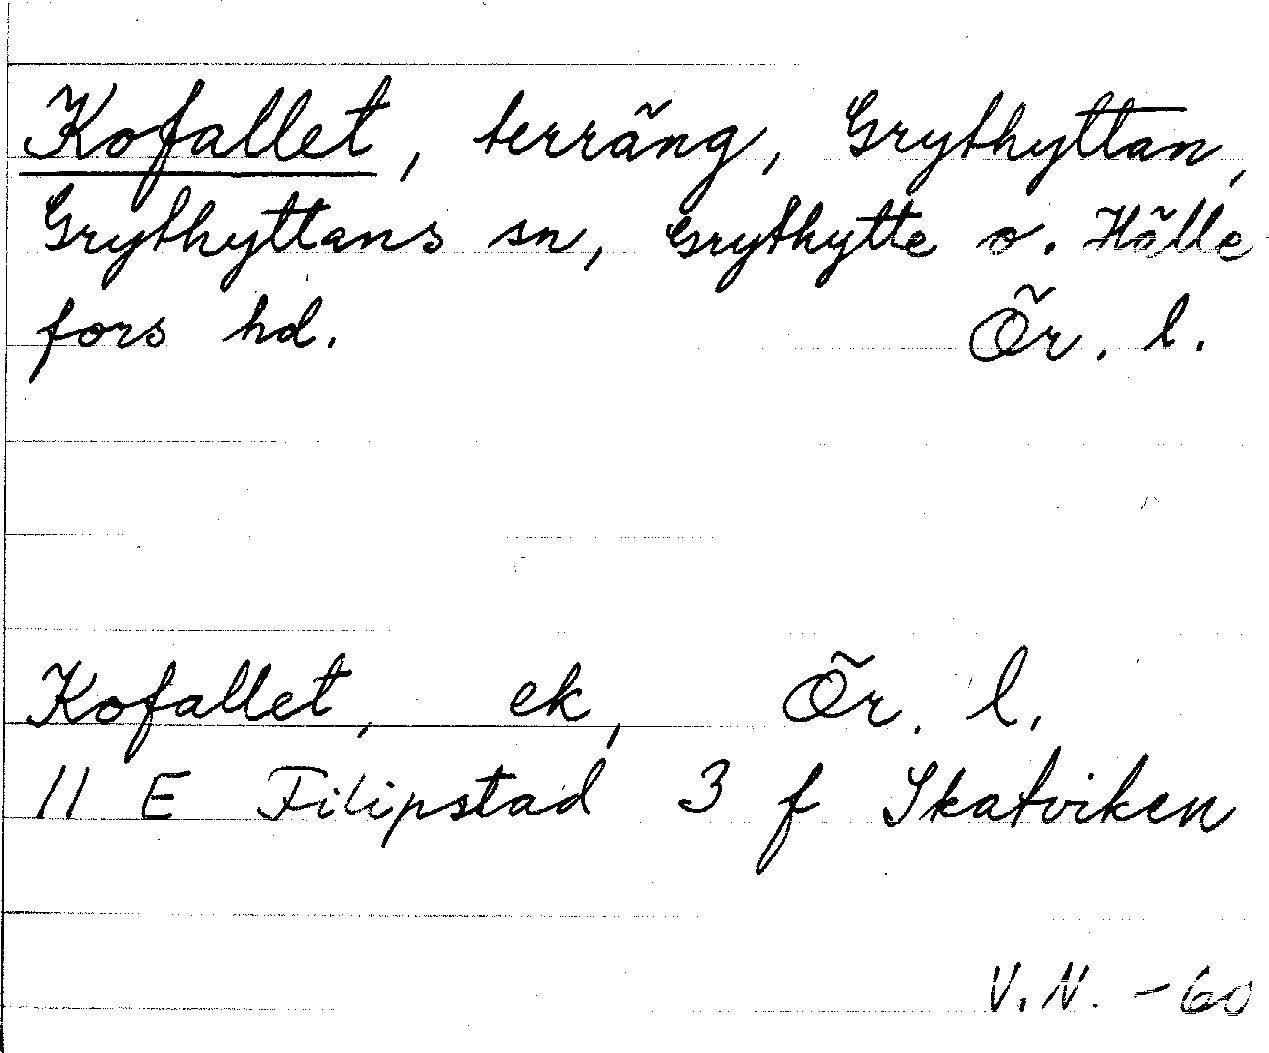 Kofallet, terräng, Grythyttan,
Grythyttans sn, Grythytte o. Hälle
fors hd. Ör. l.
Kofallet, ek, Ör. l.
11 E Filipstad 3 f Skatviken
V. N. - 60